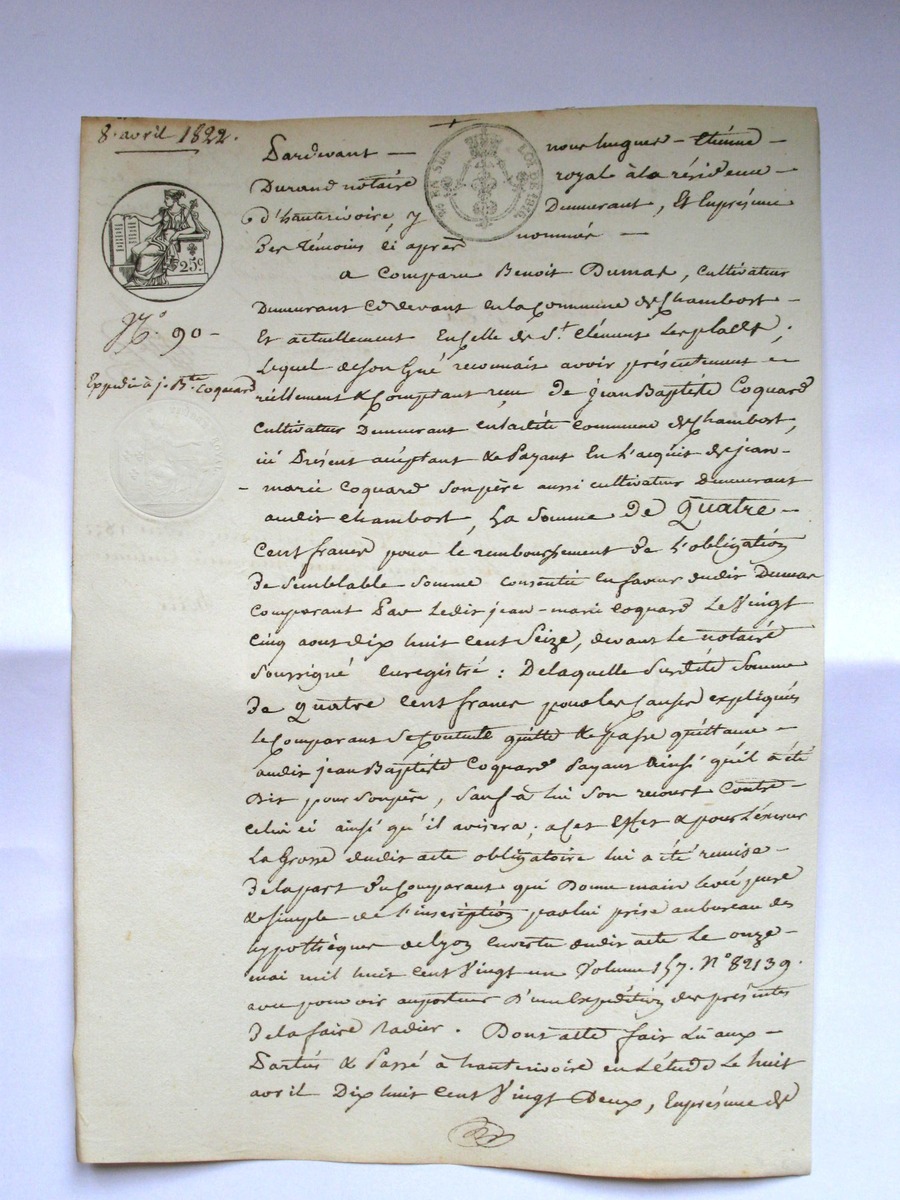 8. avril 1822.
25c
EN SUS
LOI DE 1816
N.o 90 -
Expédié à j. Bte Coquard
Pardevant - nous hugues - Etienne -
Durand notaire royale à la résidence -
d'hauterivoire y Demeurant, Et En présence
Des témoins ci après nommés -
a Comparu Benoit Dumas, Cultivateur
Demeurant Cidevant en la Commune de Chambost -
Et actuellement En celle de St. Clément Les places,
Lequel de son Gré reconnais avoir présentement
réellement & Comptant reçu De jean Baptiste Coquard
Cultivateur Demeurant en ladite Commune de Chambost,
ici Présent acceptant & Payant En L'acquit de jean -
- marie Coquard Son père aussi cultivateur Demeurant
audit chambost, La Somme De Quatre -
Cent francs pour le remboursement de L'obligation
De Semblable Somme consentie En faveur dudit Dumas
comparant Par Ledit jean - marie Coquard Le Vingt
cinq aout dix huit cent Seize, devant Le notaire
Soussigné Enregistré : De laquelle Susdite Somme
De quatre Cent francs pour les Causes expliquées
le Comparant Se Contente quitte & passe quittance -
audit jean Baptiste Coquard Payant Ainsi qu'il a été
Dit pour Son père, Sauf à lui Son recourt Contre -
Celui ci ainsi qu'il avisera ; a Cet Effet &
La Grosse dudit acte obligatoire lui a été remise -
De la part du Comparant qui Donne main levée pure
& Simple de L'inscription par lui prise au bureau des
hypothèques de Lyon En vertu dudit acte Le onze -
mai mil huit cent Vingt un Volume 157. No 82139.
avec pouvoir au porteur D'une Expédition des présentes
De la faire Radier. Dont acte fait Lû aux -
Parties & Passé à hauterivoire en L'étude Le huit
avril Dix huit Cent Vingt Deux, En présence de